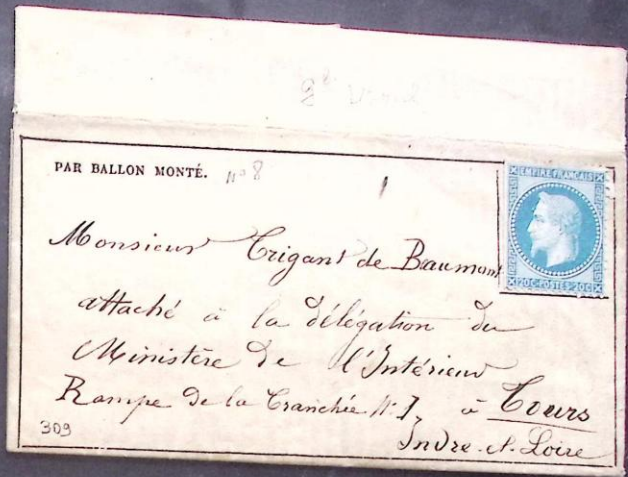 PAR BALLON MONTÉ. N° 8
EMPIRE FRANÇAIS
20 C POSTES 20 C
Monsieur Trigant de Beaumont
attaché à la délégation du
Ministère de l'Intérieur
Rampe de la Tranchée N° 7, à Tours
Indre-et-Loire
309